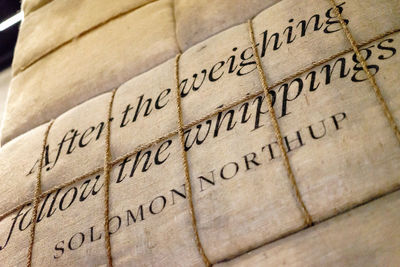 After the weighing
follow the whippings
SOLOMON NORTHUP